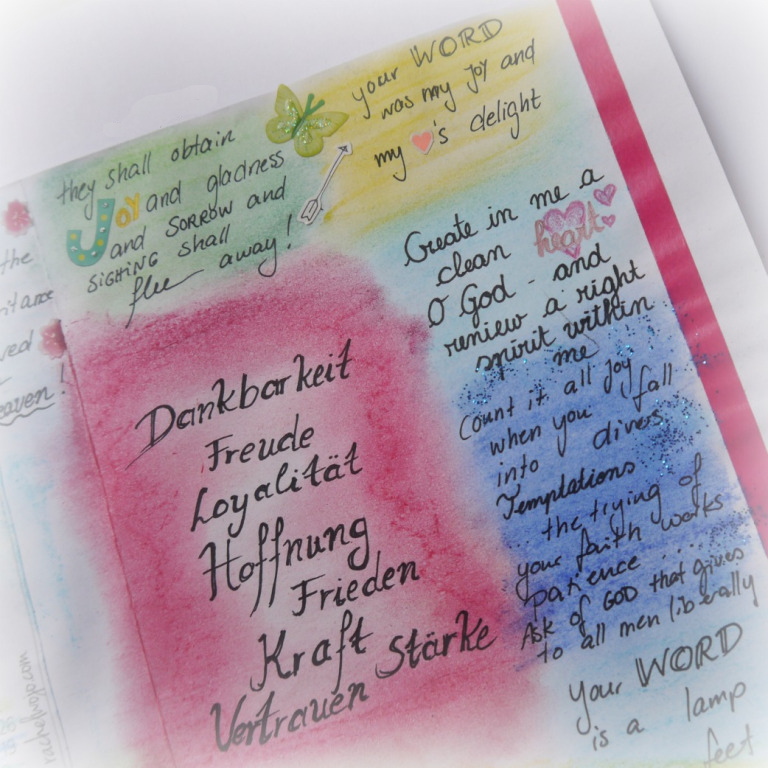 they shall obtain
Joy and gladness
and SORROW and
SIGHING shall
flee away!
your WORD
was my Joy and
my 's delight
Create in me a
clean heart
O God - and
reniew a right
spirit within
me
Count it all Joy
when you fall
into divers
Temptations
... the trying of
your faith works
patience ....
ASK of GOD that gives
to all men liberally
Your WORD
is a lamp
feet
Dankbarkeit
Freude
Loyalität
Hoffnung
Frieden
Kraft Stärke
Vertrauen
the
ved
eaven!